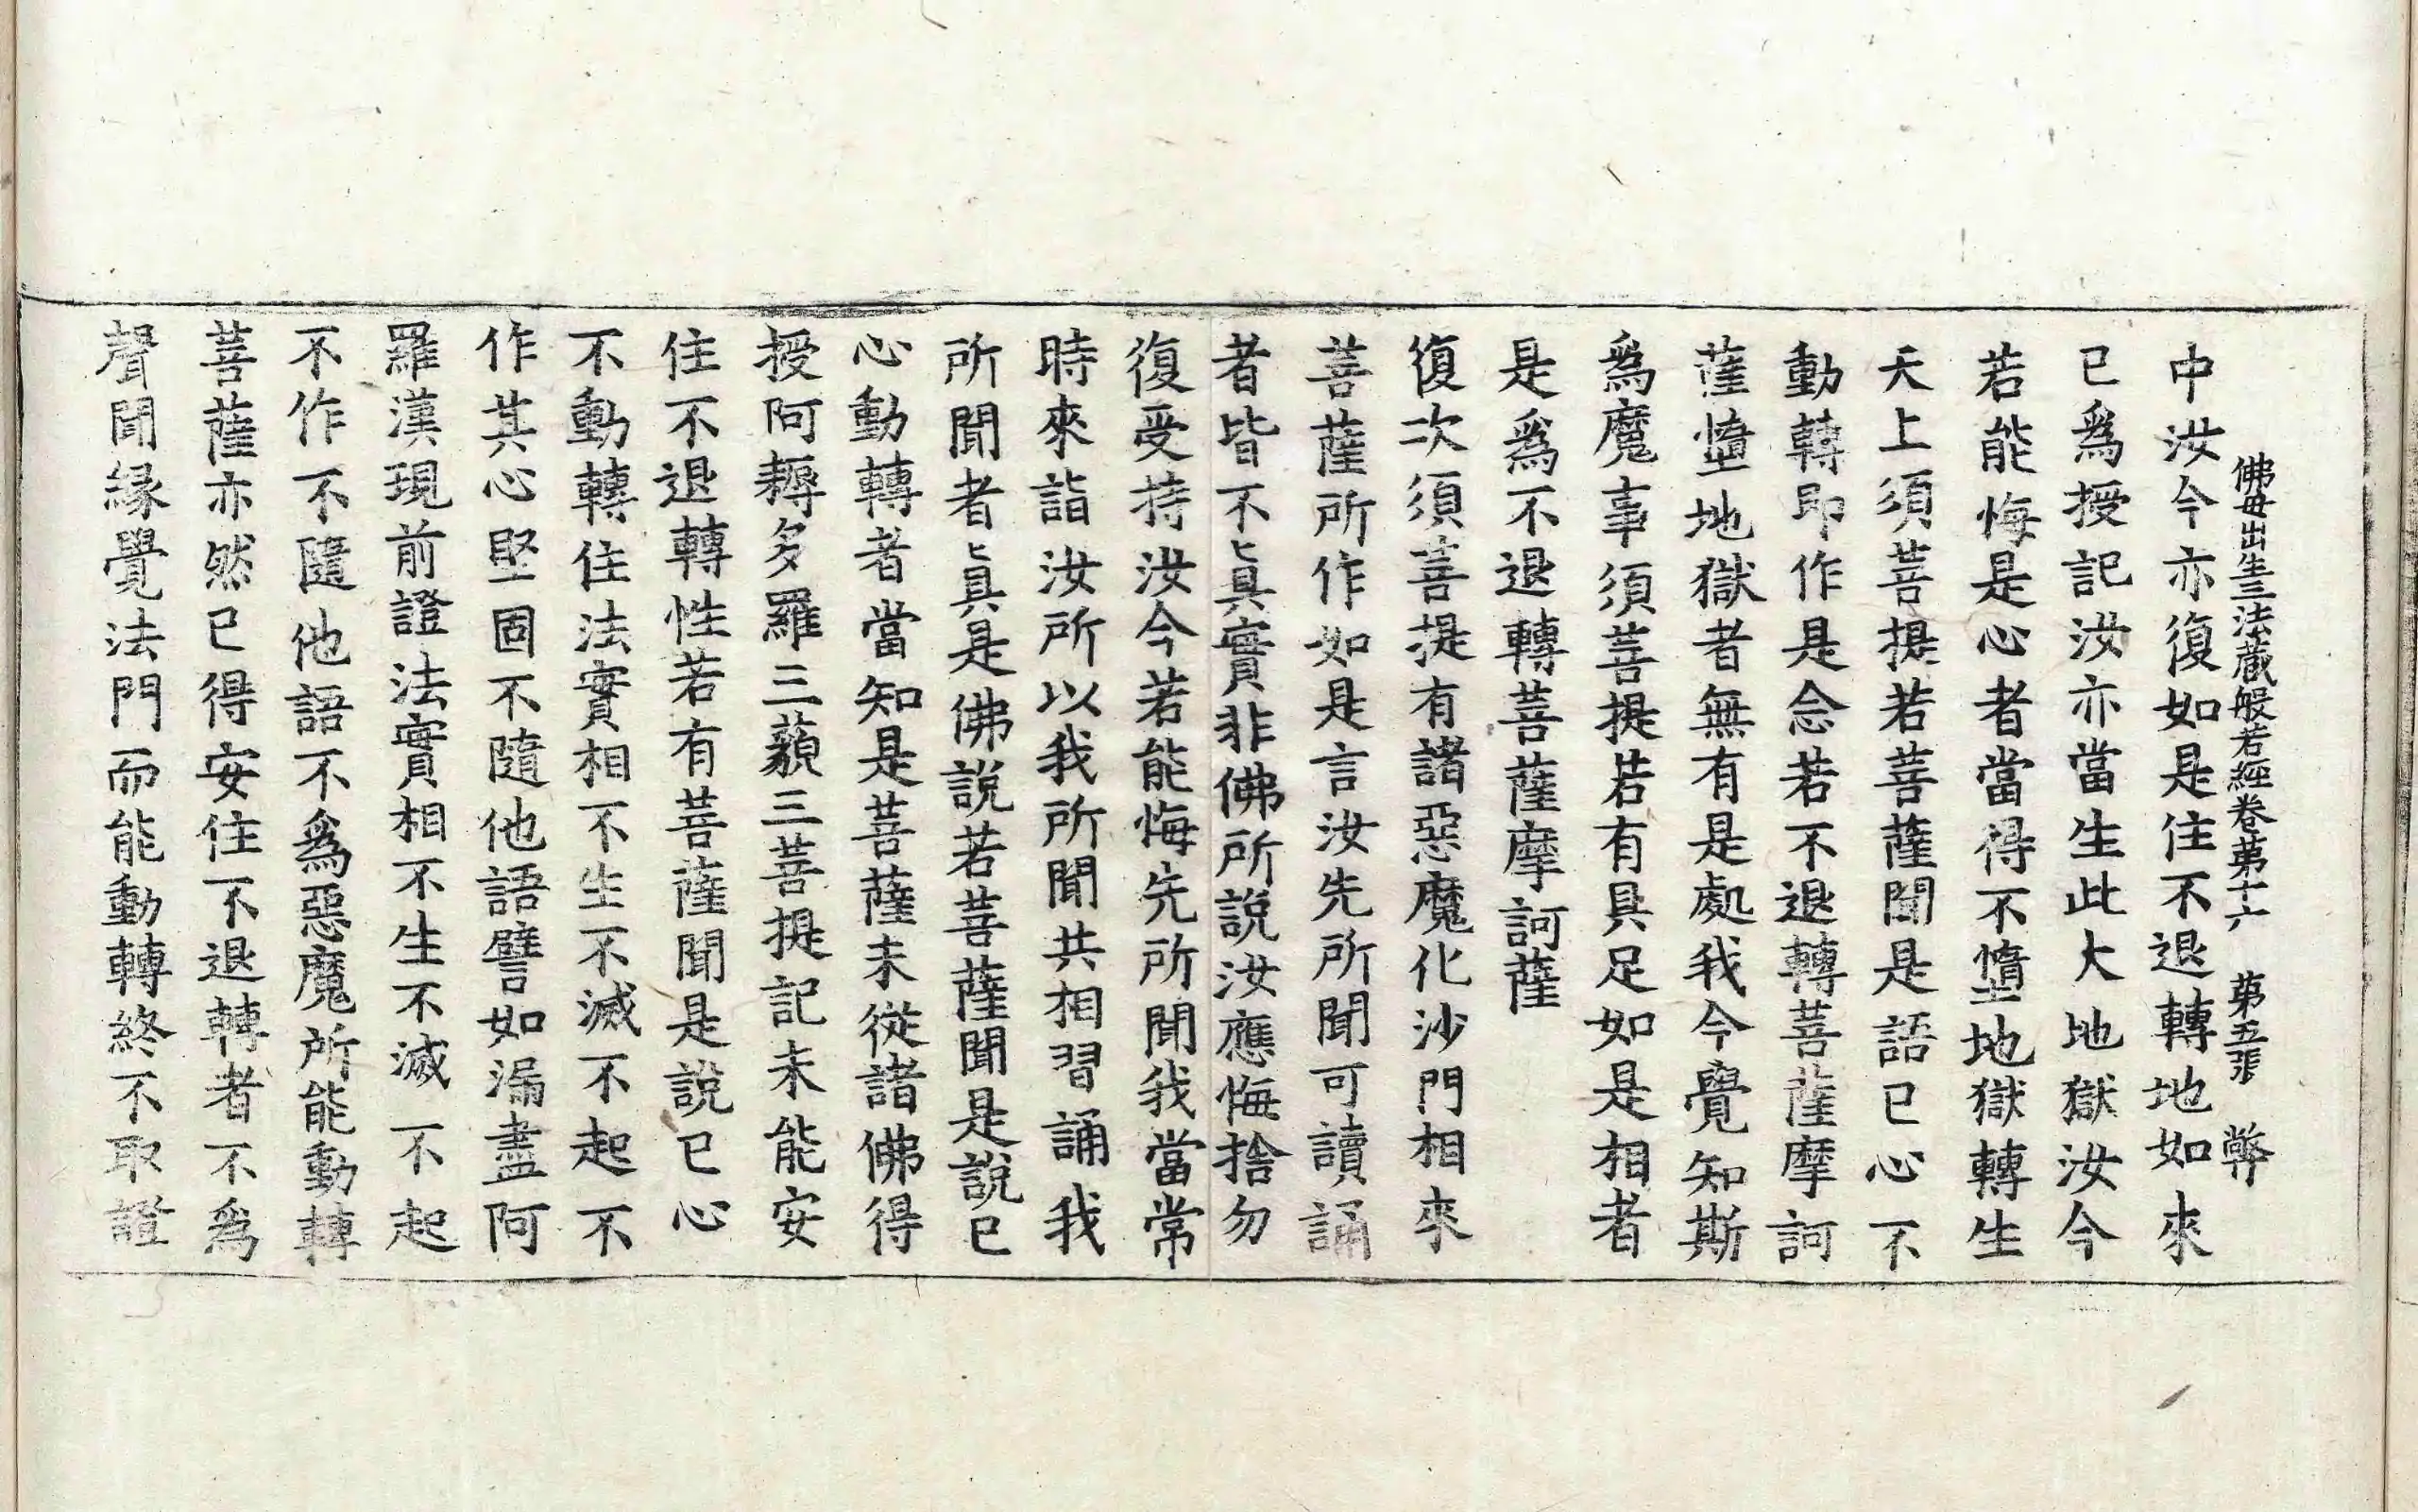 佛母出生三法藏般若經卷第十六 第五張 弊
中汝今亦復如是住不退轉地如來
已爲授記汝亦當生此大地獄汝今
若能悔是心者當得不墮地獄轉生
天上須菩提若菩薩聞是語已心不
動轉即作是念若不退轉菩薩摩訶
薩墮地獄者無有是處我今覺知斯
爲魔事須菩提若有具足如是相者
是爲不退轉菩薩摩訶薩
復次須菩提有諸惡魔化沙門相來
菩薩所作如是言汝先所聞可讀誦
者皆不眞實非佛所說汝應悔捨勿
復受持汝今若能悔先所聞我當常
時來詣汝所以我所聞共相習誦我
所聞者眞是佛說若菩薩聞是說已
心動轉者當知是菩薩未從諸佛得
授阿耨多羅三藐三菩提記未能安
住不退轉性若有菩薩聞是說已心
不動轉住法實相不生不滅不起不
作其心堅固不隨他語譬如漏盡阿
羅漢現前證法實相不生不滅不起
不作不隨他語不爲惡魔所能動轉
菩薩亦然已得安住不退轉者不爲
聲聞緣覺法門而能動轉終不取證